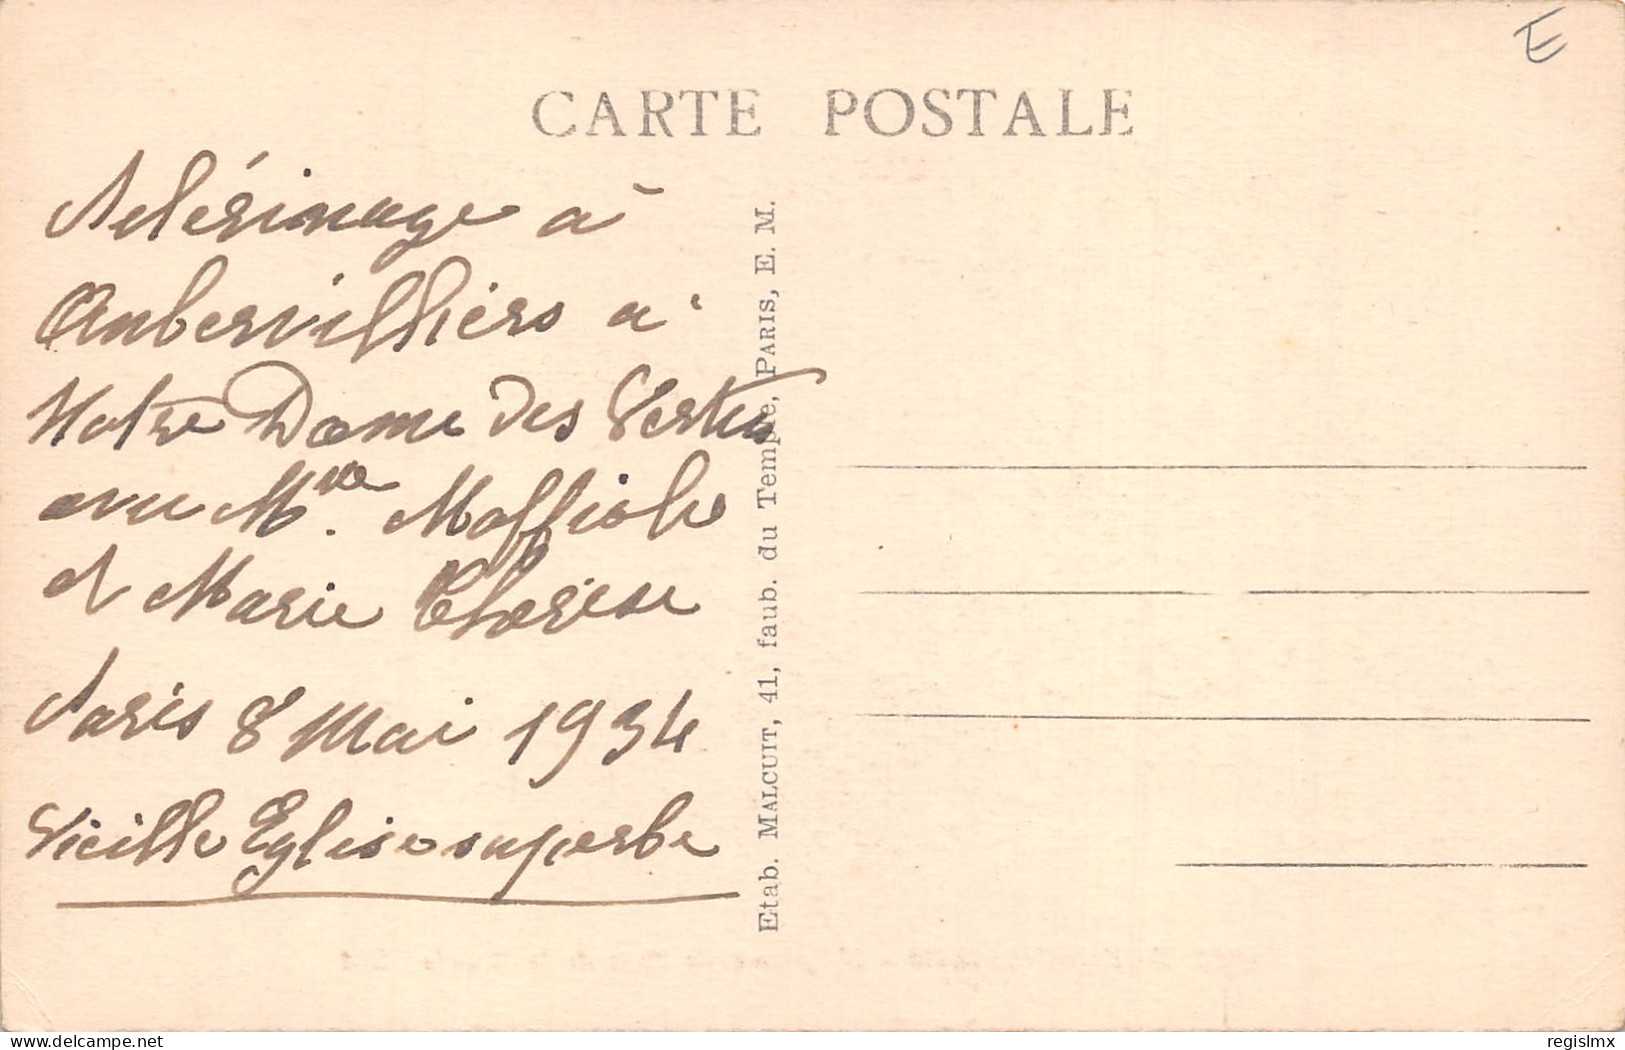 E
CARTE POSTALE
Pelérinage à
Aubervilliers à
Notre Dame des Vertus
avec M
et Marie Thérèse
Paris 8 Mai 1934
Vieille Eglise superbe
Etab. MALCUIT, 41, faub. du Temple, PARIS, E. M.
delcampe.net
regislmx